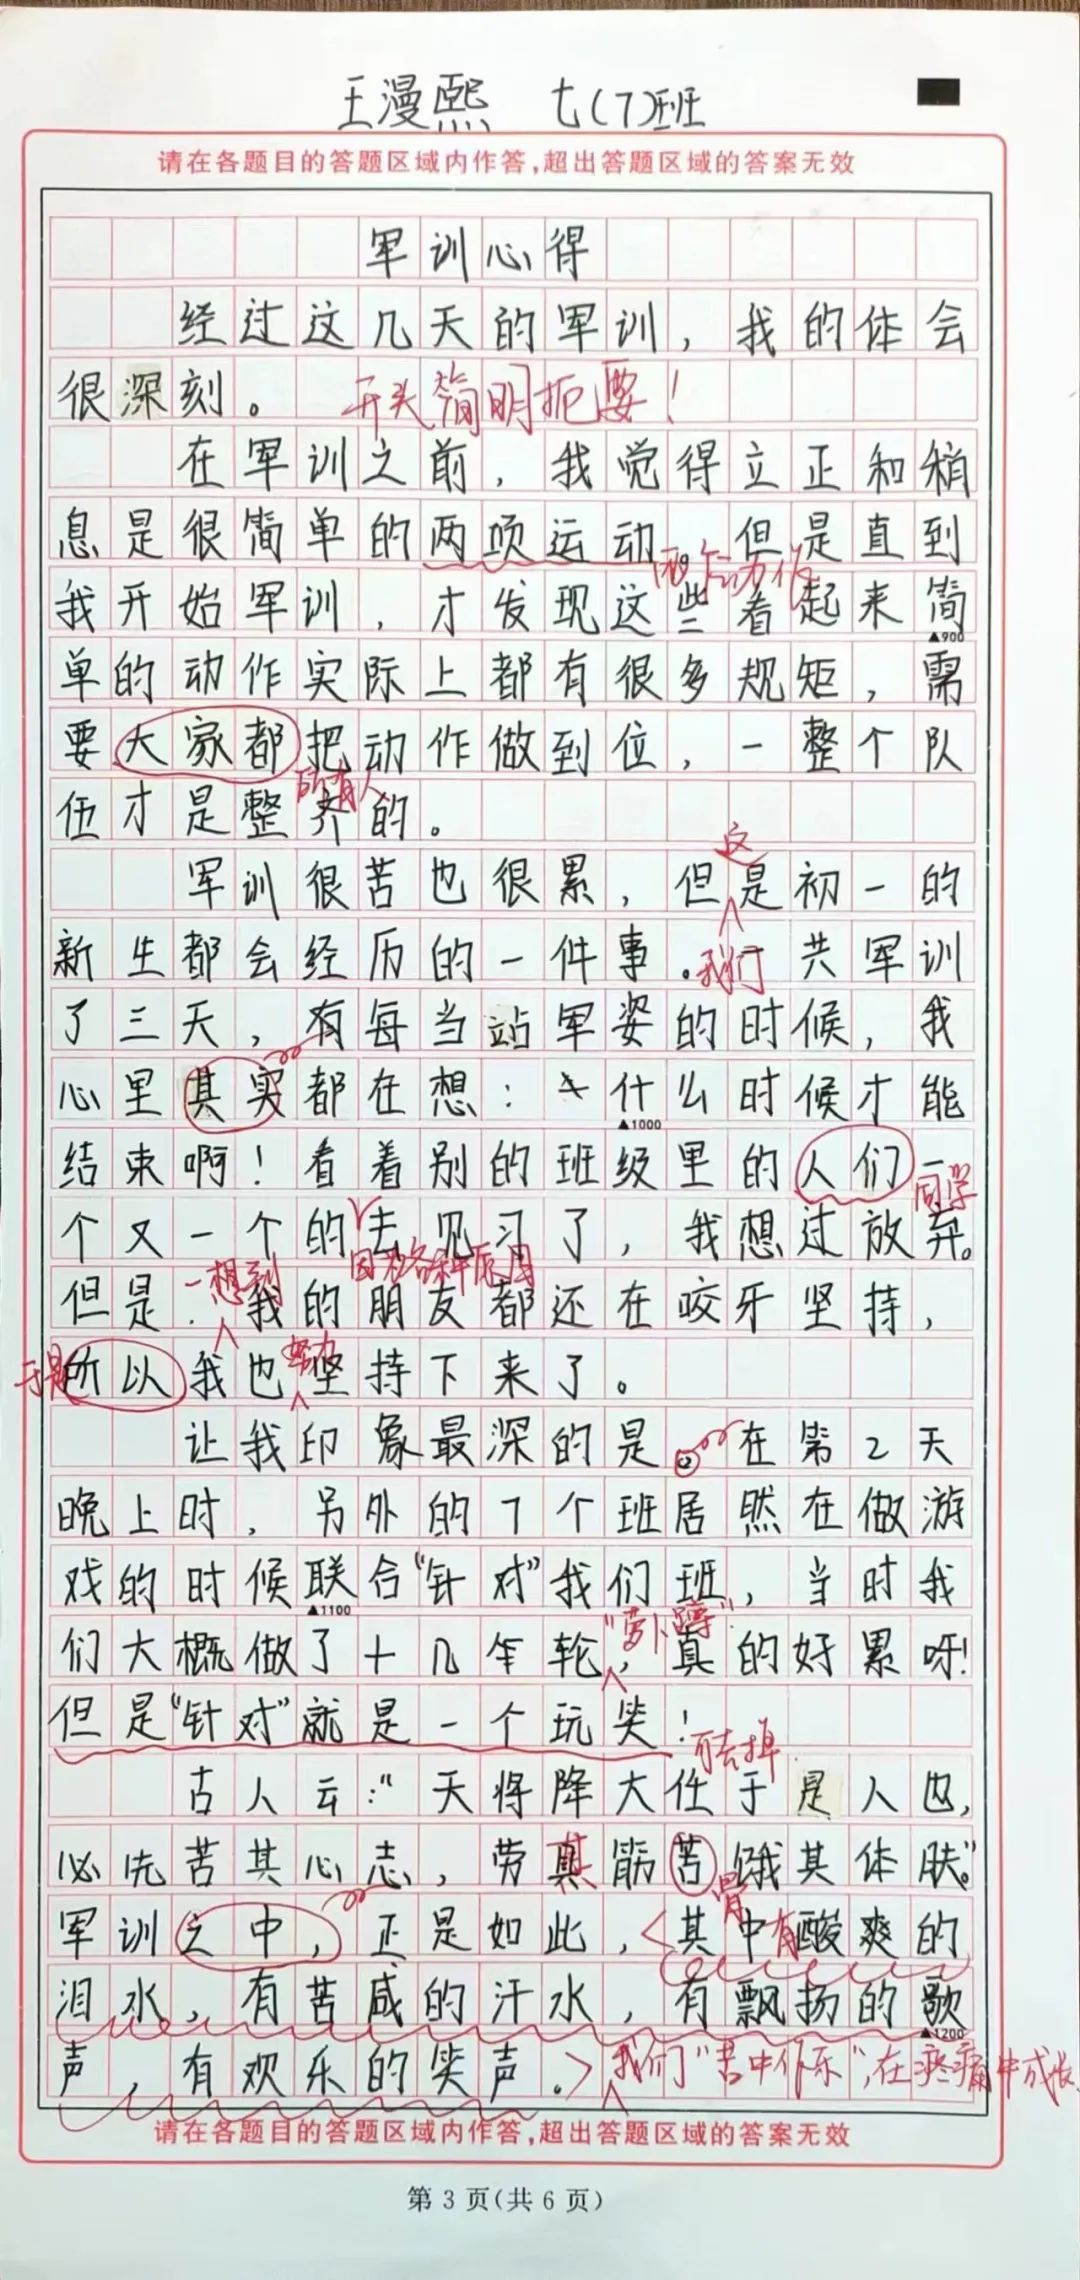 王漫熙 七(7)班
请在各题目的答题区域内作答,超出答题区域的答案无效
军训心得
经过这几天的军训，我的体会
很深刻。 开头简明扼要！
在军训之前，我觉得立正和稍
息是很简单的两项运动 但是直到
两个动作
我开始军训，才发现这些看起来简
▲900
单的动作实际上都有很多规矩，需
要大家都把动作做到位，一整个队
所有人
伍才是整齐的。
这
军训很苦也很累，但是初一的
新生都会经历的一件事。我们 共军训
了三天，有每当站军姿的时候，我
心里其实都在想：什么时候才能
▲1000
结束啊！看着别的班级里的人们一
同学
个又一个的去见习了，我想过放弃。
一想到 因为各种原因
但是．我的朋友都还在咬牙坚持，
努力
于是 所以我也坚持下来了。
让我印象最深的是 在第2天
晚上时，另外的7个班居然在做游
戏的时候联合“针对”我们班，当时我
▲1100
“萝卜蹲”
们大概做了十几轮，真的好累呀！
但是“针对”就是一个玩笑！
可去掉
古人云：“天将降大任于是人也，
必先苦其心志，劳其筋苦 饿其体肤。”
骨
军训之中，正是如此，其中有酸爽的
泪水，有苦咸的汗水，有飘扬的歌
▲1200
声，有欢乐的笑声。我们“苦中作乐”，在疼痛中成长
请在各题目的答题区域内作答,超出答题区域的答案无效
第 3 页(共 6 页)